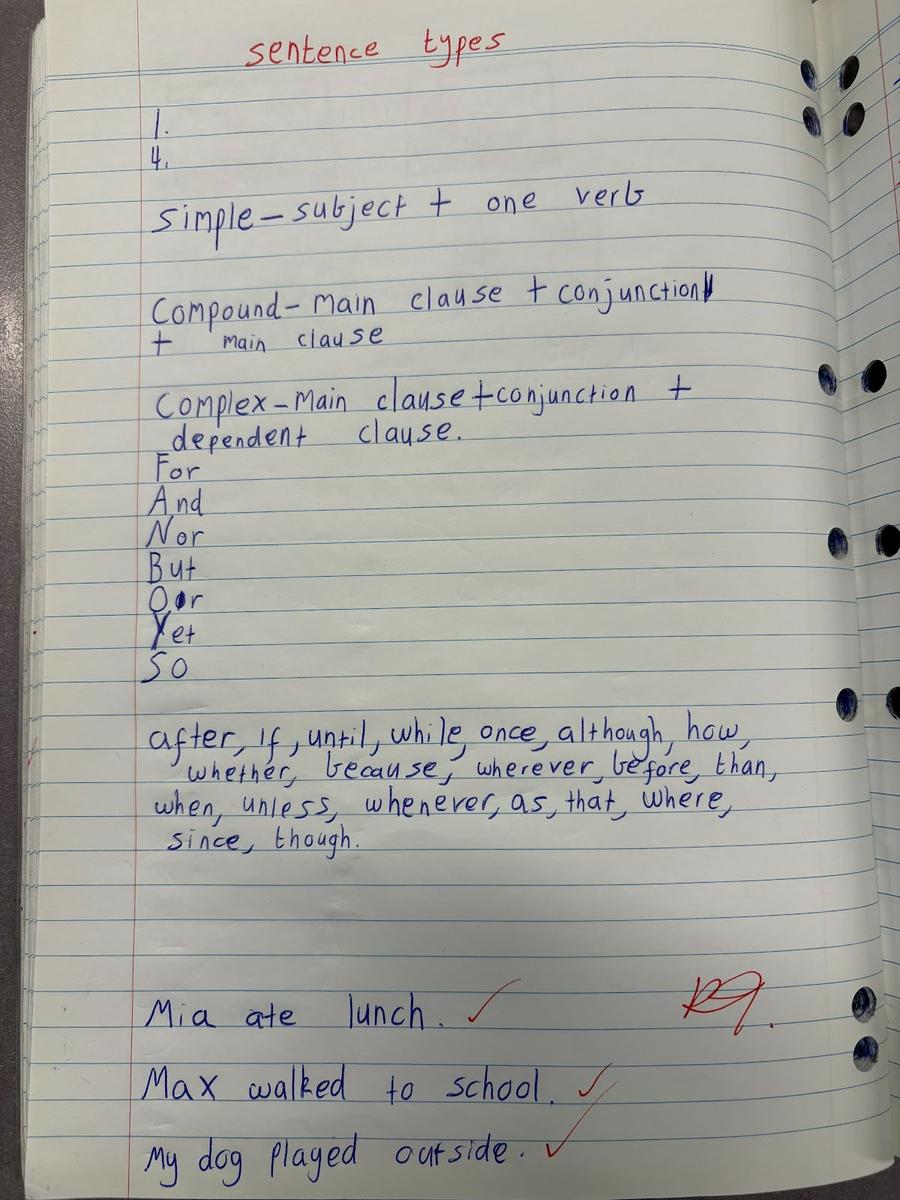 sentence types
1.
4.
Simple - subject + one verb
Compound - main clause + conjunction
+ main clause
Complex - Main clause + conjunction +
dependent clause.
For
And
Nor
But
Or
Yet
So
after, if, until, while, once, although, how,
whether, because, wherever, before, than,
when, unless, whenever, as, that, where,
since, though.
Mia ate lunch.
Max walked to school.
My dog played outside.